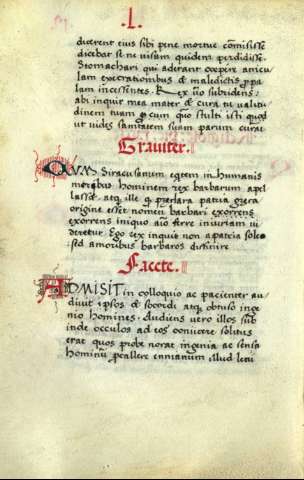 .I.
duverent eius sibi pene mortue comisisse
dicebat se ne uisum quidem perdidisse
Stomachari qui aderant coepere anicu
lam execrationibus & maledictis ppa
lam incessentes. Rex uo subridens:
abi inquit mea mater & cura tu ualitu
dinem tuam cum quo stulti isti quod
ut uides sanitatem suam parum curat
Grauiter.
QVVM Siracusanum egtem inhumanis
moribus hominem rex barbarum apel
lasset. atq; ille preclara patria grera
origine esset nomen barbari exorrens
exorrens iniquo aio ferre iniuriam ui
deretur. Ego rex inquit non a patria soleo
sed a moribus barbaros diffinire
Facete.
ADMISIT in colloquio ac pacienter au
diuit ipsos & sordidi atq; obtuso inge
nio homines. Audiens uero illos sub
inde occulos ad eos conuicere solitus
erat quos probe norat ingenia ac sensa
hominu percallere ennianum illud leui